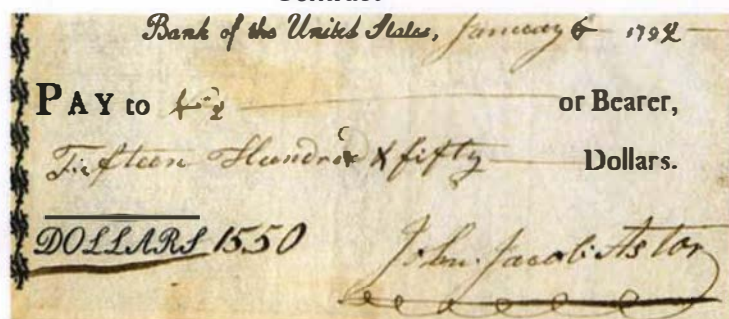 Bank of the United States, January 6 1792
PAY to or Bearer,
Fifteen Hundred & fifty Dollars.
DOLLARS 1550
John Jacob Astor